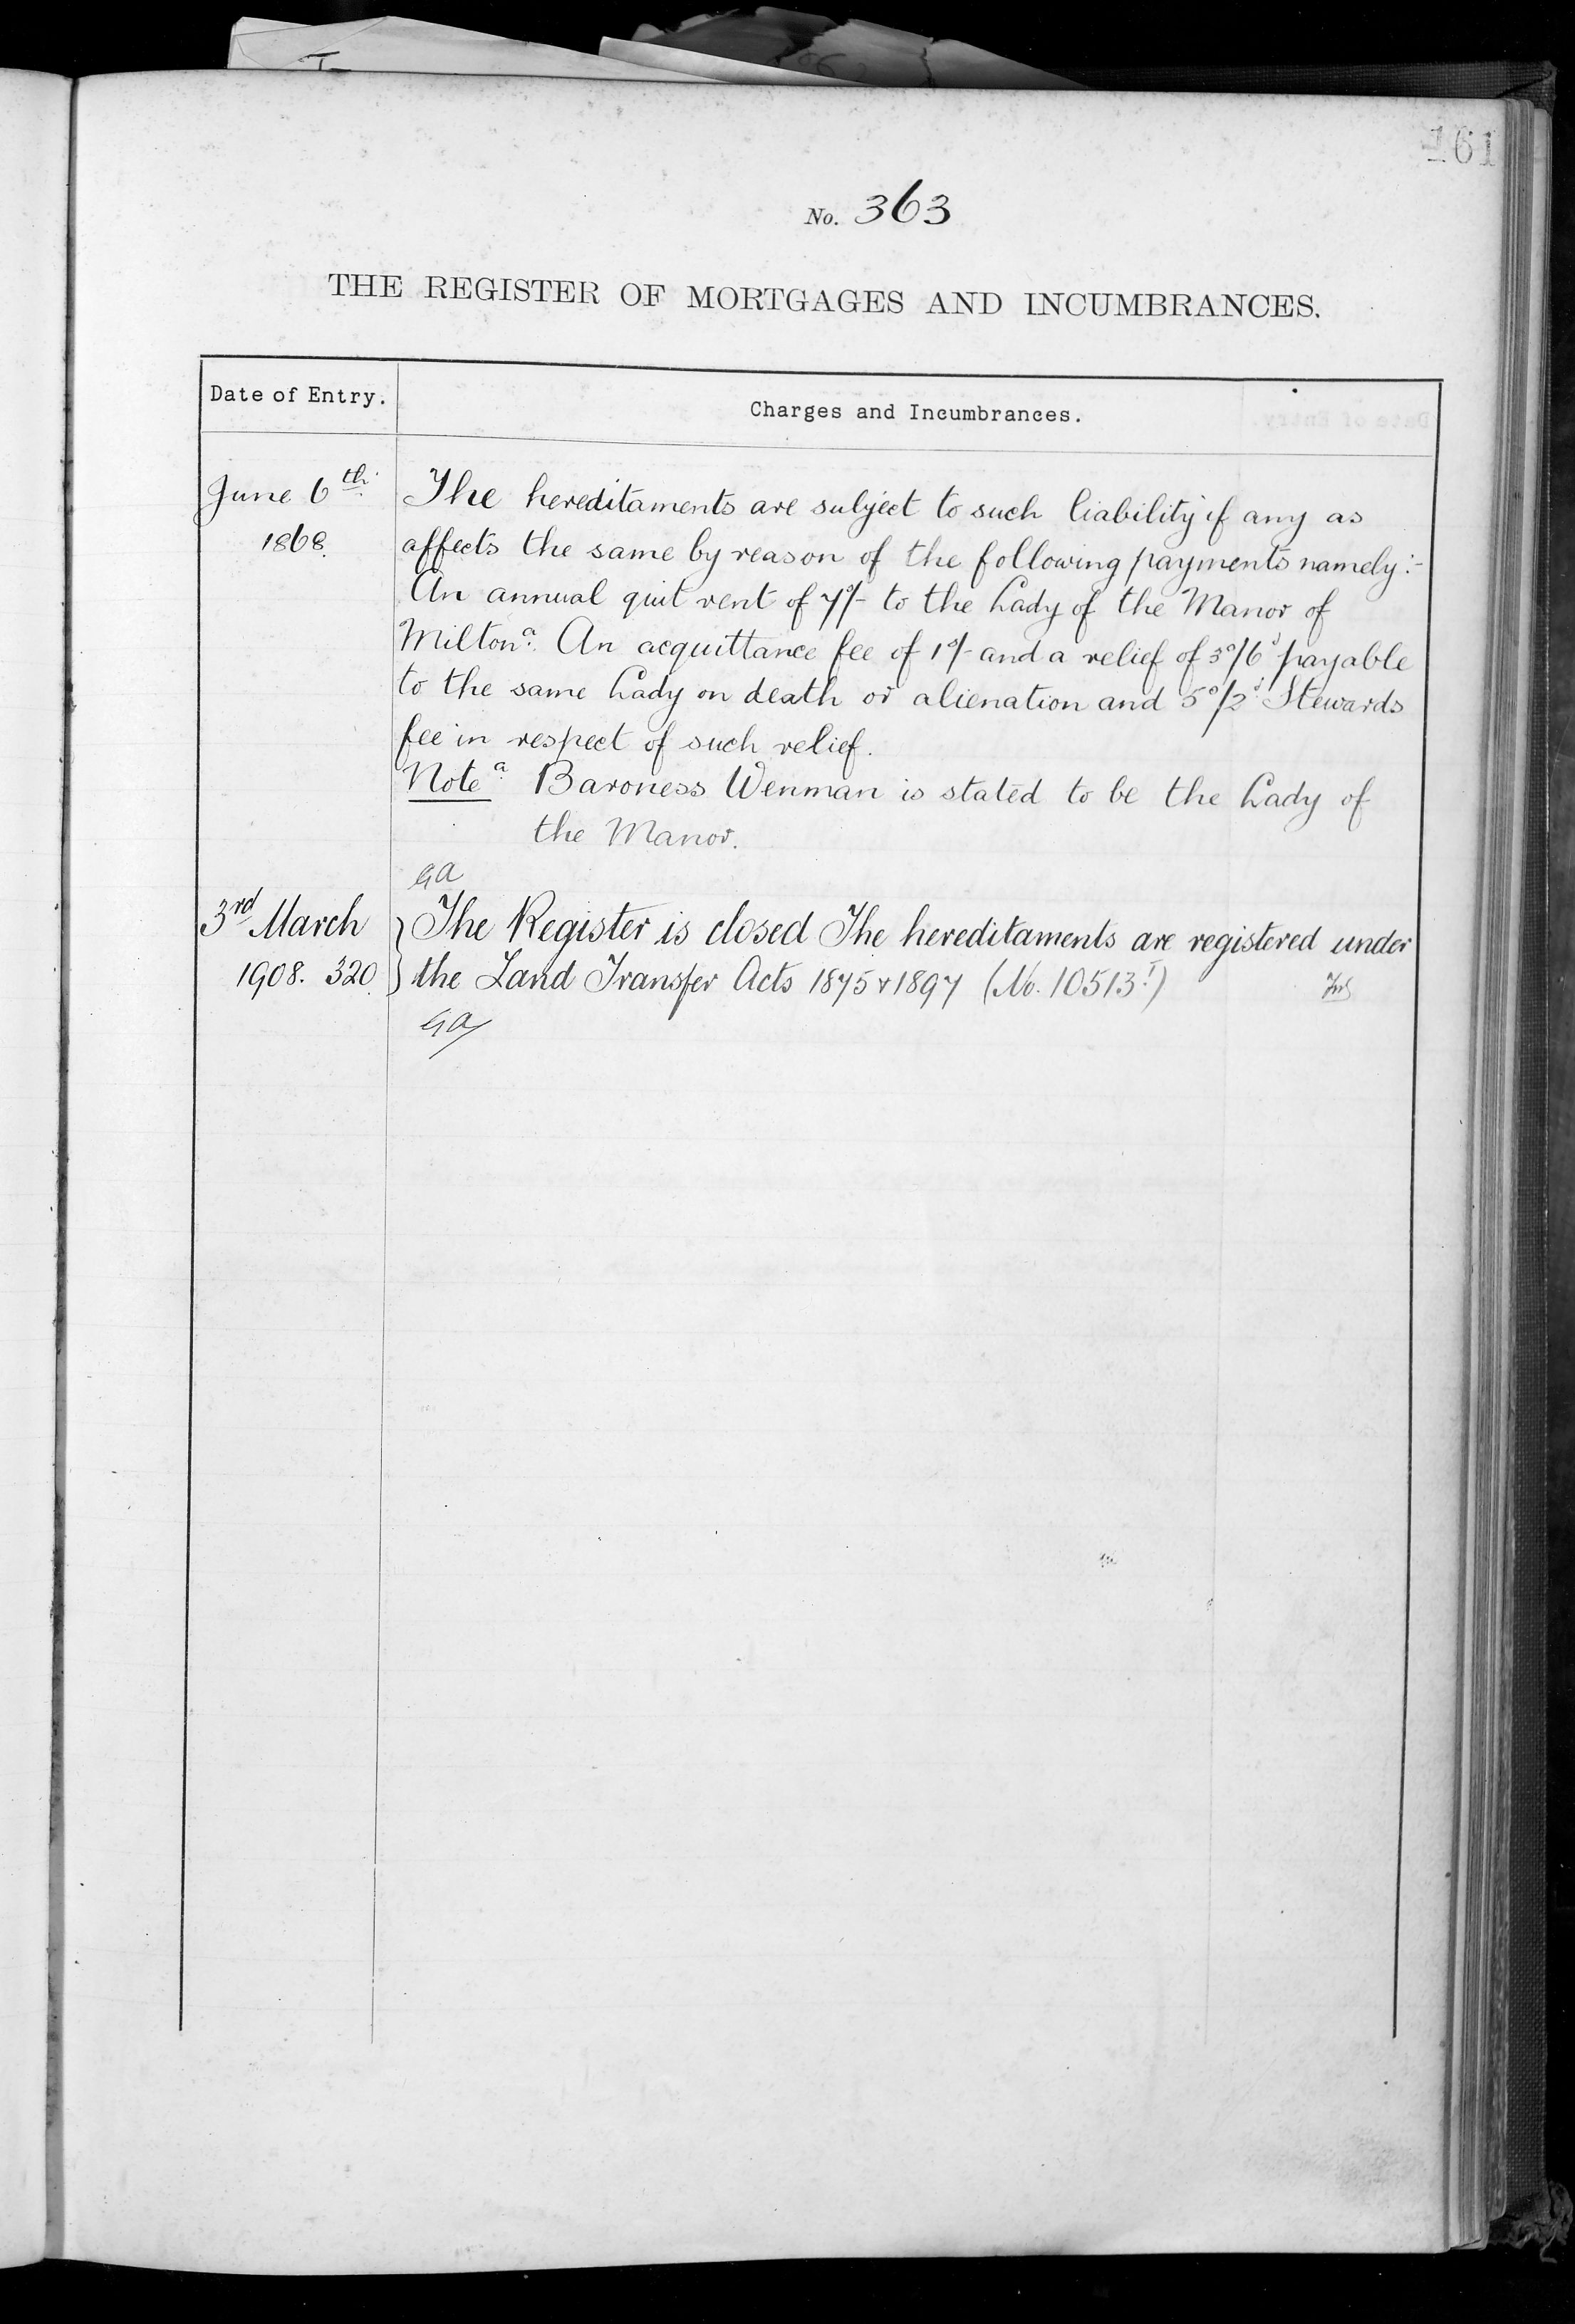 161
No. 363
THE REGISTER OF MORTGAGES AND INCUMBRANCES.
Date of Entry.
Charges and Incumbrances.
June 6th
1868.
The hereditaments are subject to such liability if any as
affects the same by reason of the following payments namely:-
An annual quit rent of 7s/- to the Lady of the Manor of
Milton a. An acquittance fee of 1s/- and a relief of 3s/6d payable
to the same Lady on death or alienation and 5s/2d Stewards
fee in respect of such relief.
Note a Baroness Wenman is stated to be the Lady of
the Manor.
GA
3rd March
1908. 320
The Register is closed The hereditaments are registered under
the Land Transfer Acts 1875 & 1897 (No. 10513.I)
GA